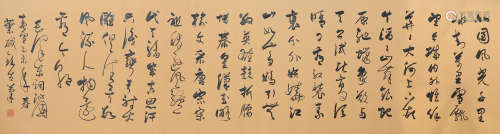 北国风光千里
冰封万里雪飘
望长城内外惟余
莽莽大河上下顿
失滔滔山舞银蛇
原驰蜡象欲与
天公试比高须
晴日看红装素
裹分外妖娆江
山如此多娇引无
数英雄竞折腰
惜秦皇汉武
略输文采唐宗宋
祖稍逊风骚一
代天骄成吉思汗
只识弯弓射大
雕俱往矣数
风流人物还
看今朝
毛泽东词沁园
春雪